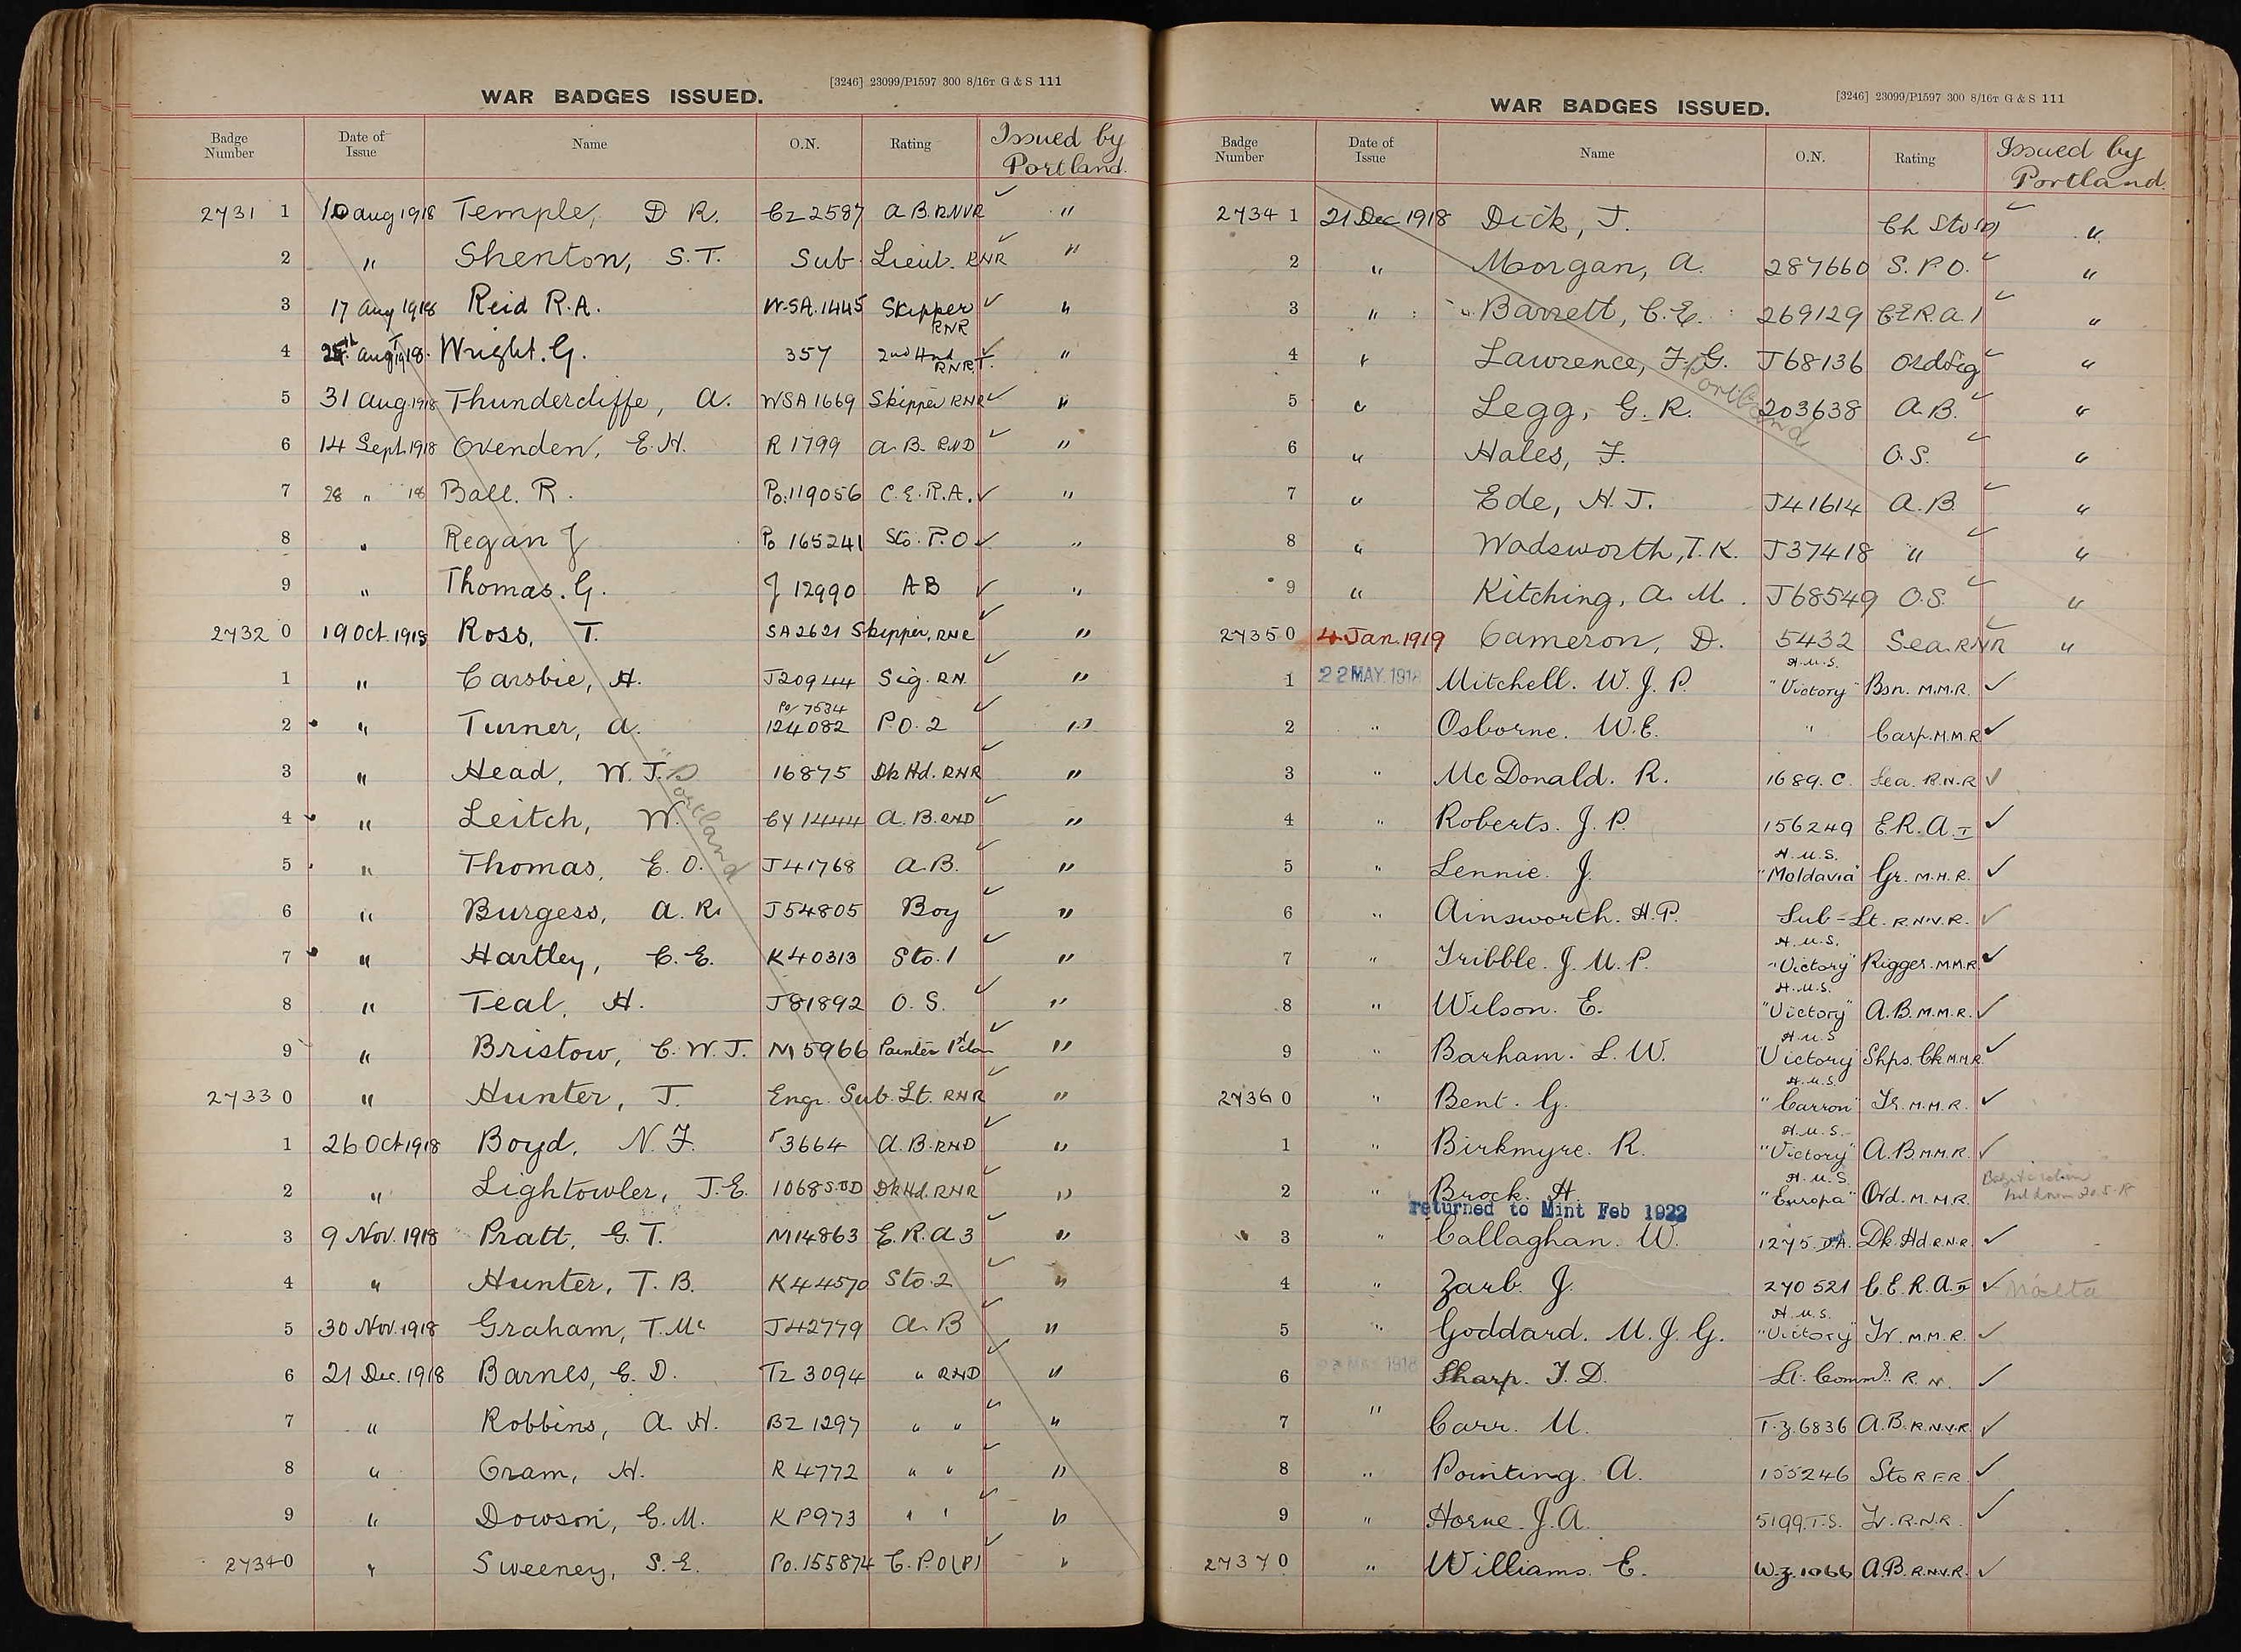 WAR BADGES ISSUED. [3246] 23099/P1597 300 8/16T G & S 111
Badge Number Date of Issue Name O.N. Rating Issued by Portland.
2731 1 10 Aug 1918 Temple, D R. Cz 2587 A B. RNVR ✓ "
2 " Shenton, S.T. Sub Lieut. RNR ✓ "
3 17 Aug 1918 Reid R.A. W.SA.1445 Skipper RNR ✓ "
4 Augt 1918. Wright. G. 357 2nd Hnd RNR.T. ✓ "
5 31 Aug 1918 Thundercliffe, A. WSA 1669 Skipper RNR ✓ "
6 14 Sept. 1918 Oxenden, E.H. R 1799 A. B. RND ✓ "
7 28 " 18 Ball. R. Po. 119056 C.E.R.A. ✓ "
8 " Regan J Po 165241 Sto. P.O ✓ "
9 " Thomas. G. J 12990 AB ✓ "
2732 0 19 Oct. 1918 Ross, T. SA 2621 Skipper, RNR ✓ "
1 " Carsbie, H. J20944 Sig. RN. ✓ "
2 " Turner, A. Po/7634 124082 P.O. 2 ✓ "
3 " Head, W. J. 16875 Dk Hd. RNR ✓ "
4 " Leitch, W. Cy 1444 A. B. RND ✓ "
5 " Thomas, E. O. J41768 A.B. ✓ "
6 " Burgess, A. R. J54805 Boy ✓ "
7 " Hartley, C. E. K40313 Sto. 1 ✓ "
8 " Teal, H. J81892 O. S. ✓ "
9 " Bristow, C. W. J. M 5966 Painter 1st Clas ✓ "
2733 0 " Hunter, J. Engr. Sub. Lt. RNR ✓ "
1 26 Oct 1918 Boyd, N. F. 3664 A. B. RND ✓ "
2 " Lightowler, J. E. 1068 S.BD Dk Hd. RNR ✓ "
3 9 Nov. 1918 Pratt, G. T. M14863 E. R. A 3 ✓ "
4 " Hunter, T. B. K44570 Sto. 2 ✓ "
5 30 Nov. 1918 Graham, T. Mc J42779 A. B ✓ "
6 21 Dec. 1918 Barnes, E. D. Tz 3094 " RND ✓ "
7 " Robbins, A. H. BZ 1297 " " ✓ "
8 " Oram, H. R 4772 " " ✓ "
9 " Dowson, G. M. KP973 " " ✓ "
2734 0 " Sweeney, S. E. Po. 155874 C. P.O (P) ✓ "
Portland
WAR BADGES ISSUED. [3246] 23099/P1597 300 8/16T G & S 111
Badge Number Date of Issue Name O.N. Rating Issued by Portland.
2734 1 21 Dec 1918 Dick, J. Ch Sto ✓ "
2 " Morgan, A. 287660 S. P.O. ✓ "
3 " Barrett, C. E. 269129 C E R. A. 1 ✓ "
4 " Lawrence, F. G. J68136 Ord Sig ✓ "
5 " Legg, G. R. 203638 A. B. ✓ "
6 " Hales, F. O. S. ✓ "
7 " Ede, H. J. J41614 A. B. ✓ "
8 " Wadsworth, T. K. J37418 " ✓ "
9 " Kitching, A. M. J68549 O.S. ✓ "
2735 0 4 Jan. 1919 Cameron, D. 5432 Sea. RNR ✓ "
1 22 MAY. 1918 Mitchell. W. J. P. H.M.S. "Victory" Bsn. M.M.R. ✓
2 " Osborne. W. E. " Carp. M.M.R ✓
3 " Mc Donald. R. 1689. C. Sea. R.N.R ✓
4 " Roberts. J. P. 156249 E. R. A. I ✓
5 " Lennie. J. H.M.S. "Moldavia" Gr. M.M.R. ✓
6 " Ainsworth. H. P. Sub-Lt. R.N.V.R. ✓
7 " Tribble. J. M. P. H.M.S. "Victory" Rigger. M.M.R. ✓
8 " Wilson. E. H.M.S. "Victory" A. B. M.M.R. ✓
9 " Barham. L. W. H.M.S "Victory" Shps. Ck M.M.R. ✓
2736 0 " Bent. G. H.M.S. "Carron" Tr. M.M.R. ✓
1 " Birkmyre. R. H.M.S. "Victory" A. B M.M.R. ✓
2 " Brock. H. H.M.S. "Europa" Ord. M.M.R.
returned to Mint Feb 1922
3 " Callaghan. W. 1275. DA. Dk. Hd R.N.R. ✓
4 " Zarb. J. 270521 C. E. R. A. II ✓ Malta
5 " Goddard. M. J. G. H.M.S. "Victory" Tr. M.M.R. ✓
6 MAY 1918 Sharp. T. D. Lt. Commdr. R. N. ✓
7 " Carr. M. T.Z. 6836 A. B. R.N.V.R. ✓
8 " Pointing. A. 155246 Sto R.F.R. ✓
9 " Horne. J. A. 5199. T.S. Tr. R.N.R. ✓
2737 0 " Williams. E. W.Z. 1066 A. B. R.N.V.R. ✓
Portland